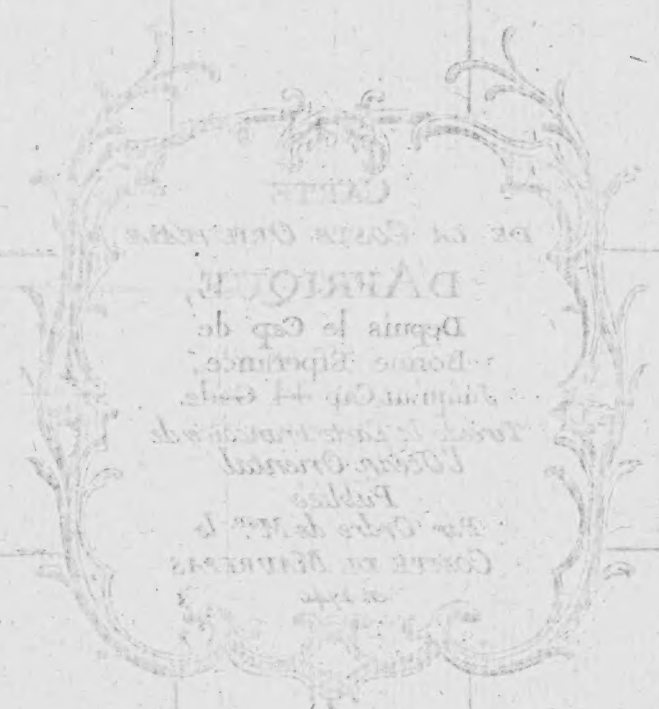 CARTE
DE LA COSTE ORIENTALE
D'AFRIQUE,
Depuis le Cap de
Bonne Esperance,
Jusqu'au Cap del Gada.
Tirée de la Carte
l'Océan Oriental
Publiée
Par Ordre de Mgr. le
COMTE DE MAUREPAS
en 1740